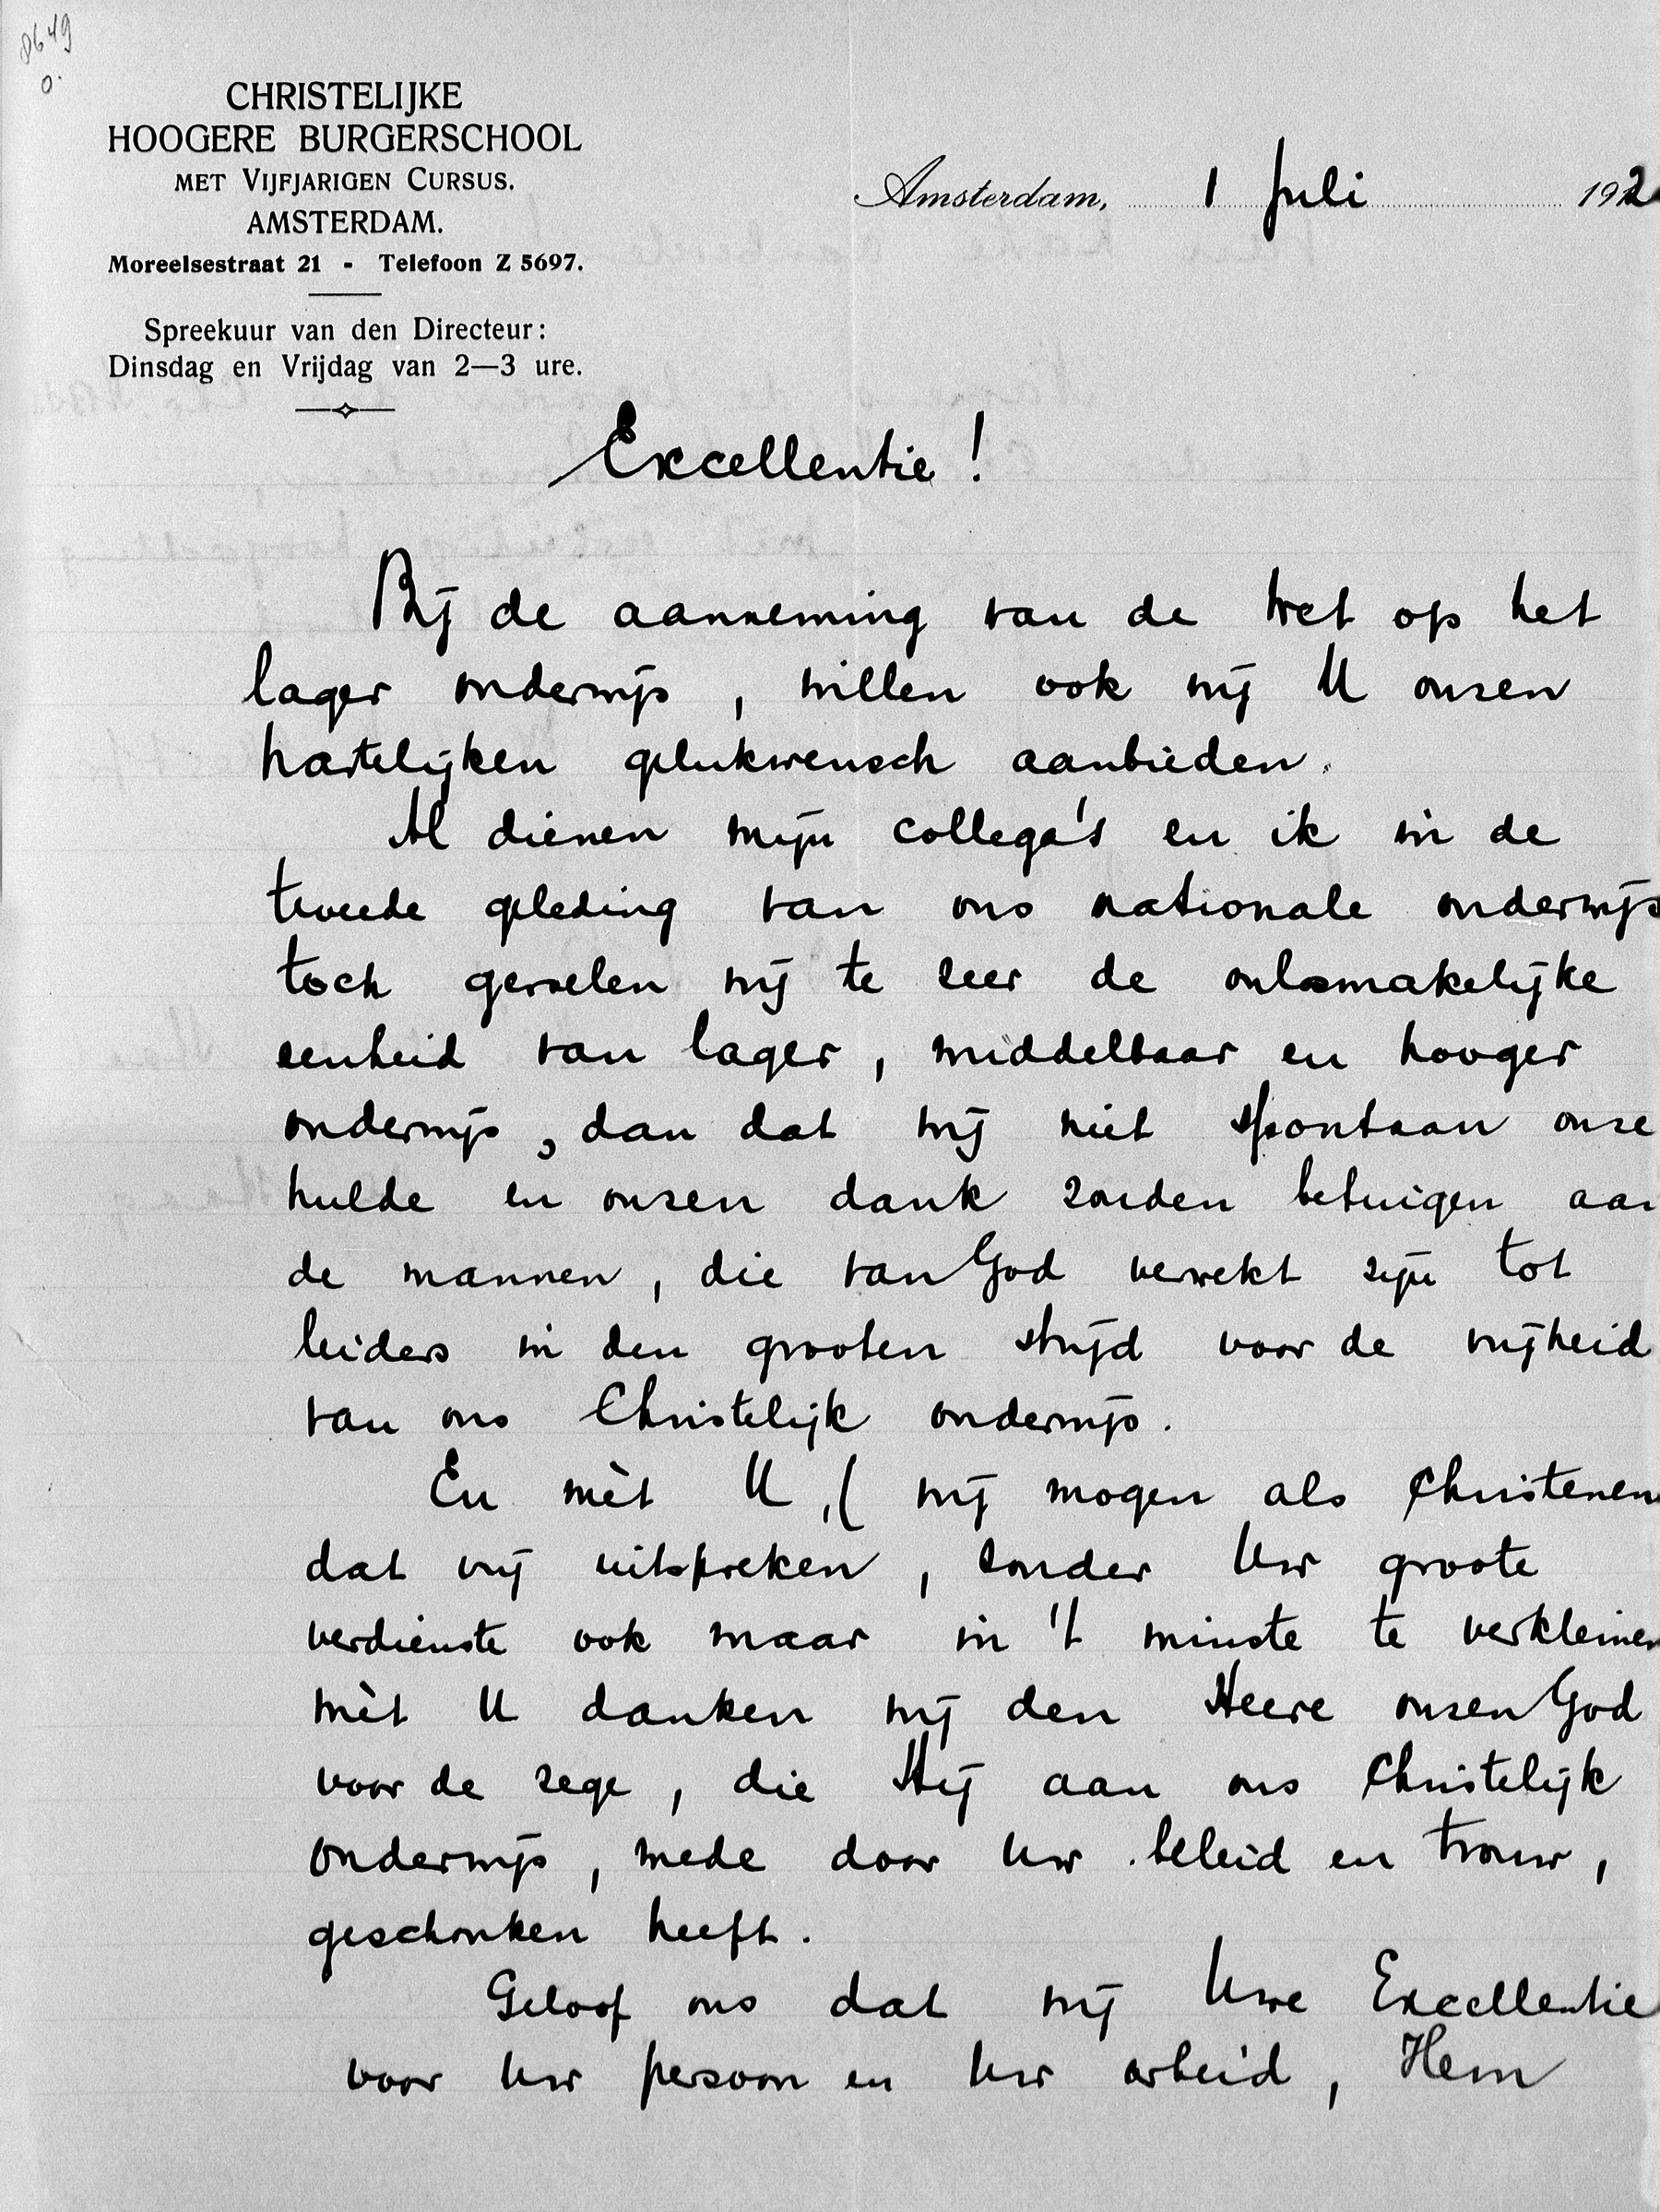 8649
0.
CHRISTELIJKE
HOOGERE BURGERSCHOOL
MET VIJFJARIGEN CURSUS.
AMSTERDAM.
Moreelsestraat 21 - Telefoon Z 5697.
Spreekuur van den Directeur:
Dinsdag en Vrijdag van 2—3 ure.
Amsterdam, 1 Juli 192
Excellentie!
Bij de aanneming van de wet op het
lager onderwijs, willen ook wij U onzen
hartelijken gelukwensch aanbieden.
Al dienen mijn collega's en ik in de
tweede geleding van ons nationale onderwijs
toch gevoelen wij te zeer de onlosmakelijke
eenheid van lager, middelbaar en hooger
onderwijs, dan dat wij niet spontaan onze
hulde en onzen dank zouden betuigen aan
de mannen, die van God verwekt zijn tot
leiders in den grooten strijd voor de vrijheid
van ons Christelijk onderwijs.
En mèt U, ( wij mogen als Christenen
dat vrij uitspreken, zonder Uw groote
verdienste ook maar in 't minste te verkleinen
mèt U danken wij den Heere onzen God
voor de zege, die Hij aan ons Christelijk
onderwijs, mede door Uw beleid en trouw,
geschonken heeft.
Geloof ons dat wij Uwe Excellentie
voor Uw persoon en Uw arbeid, Hem